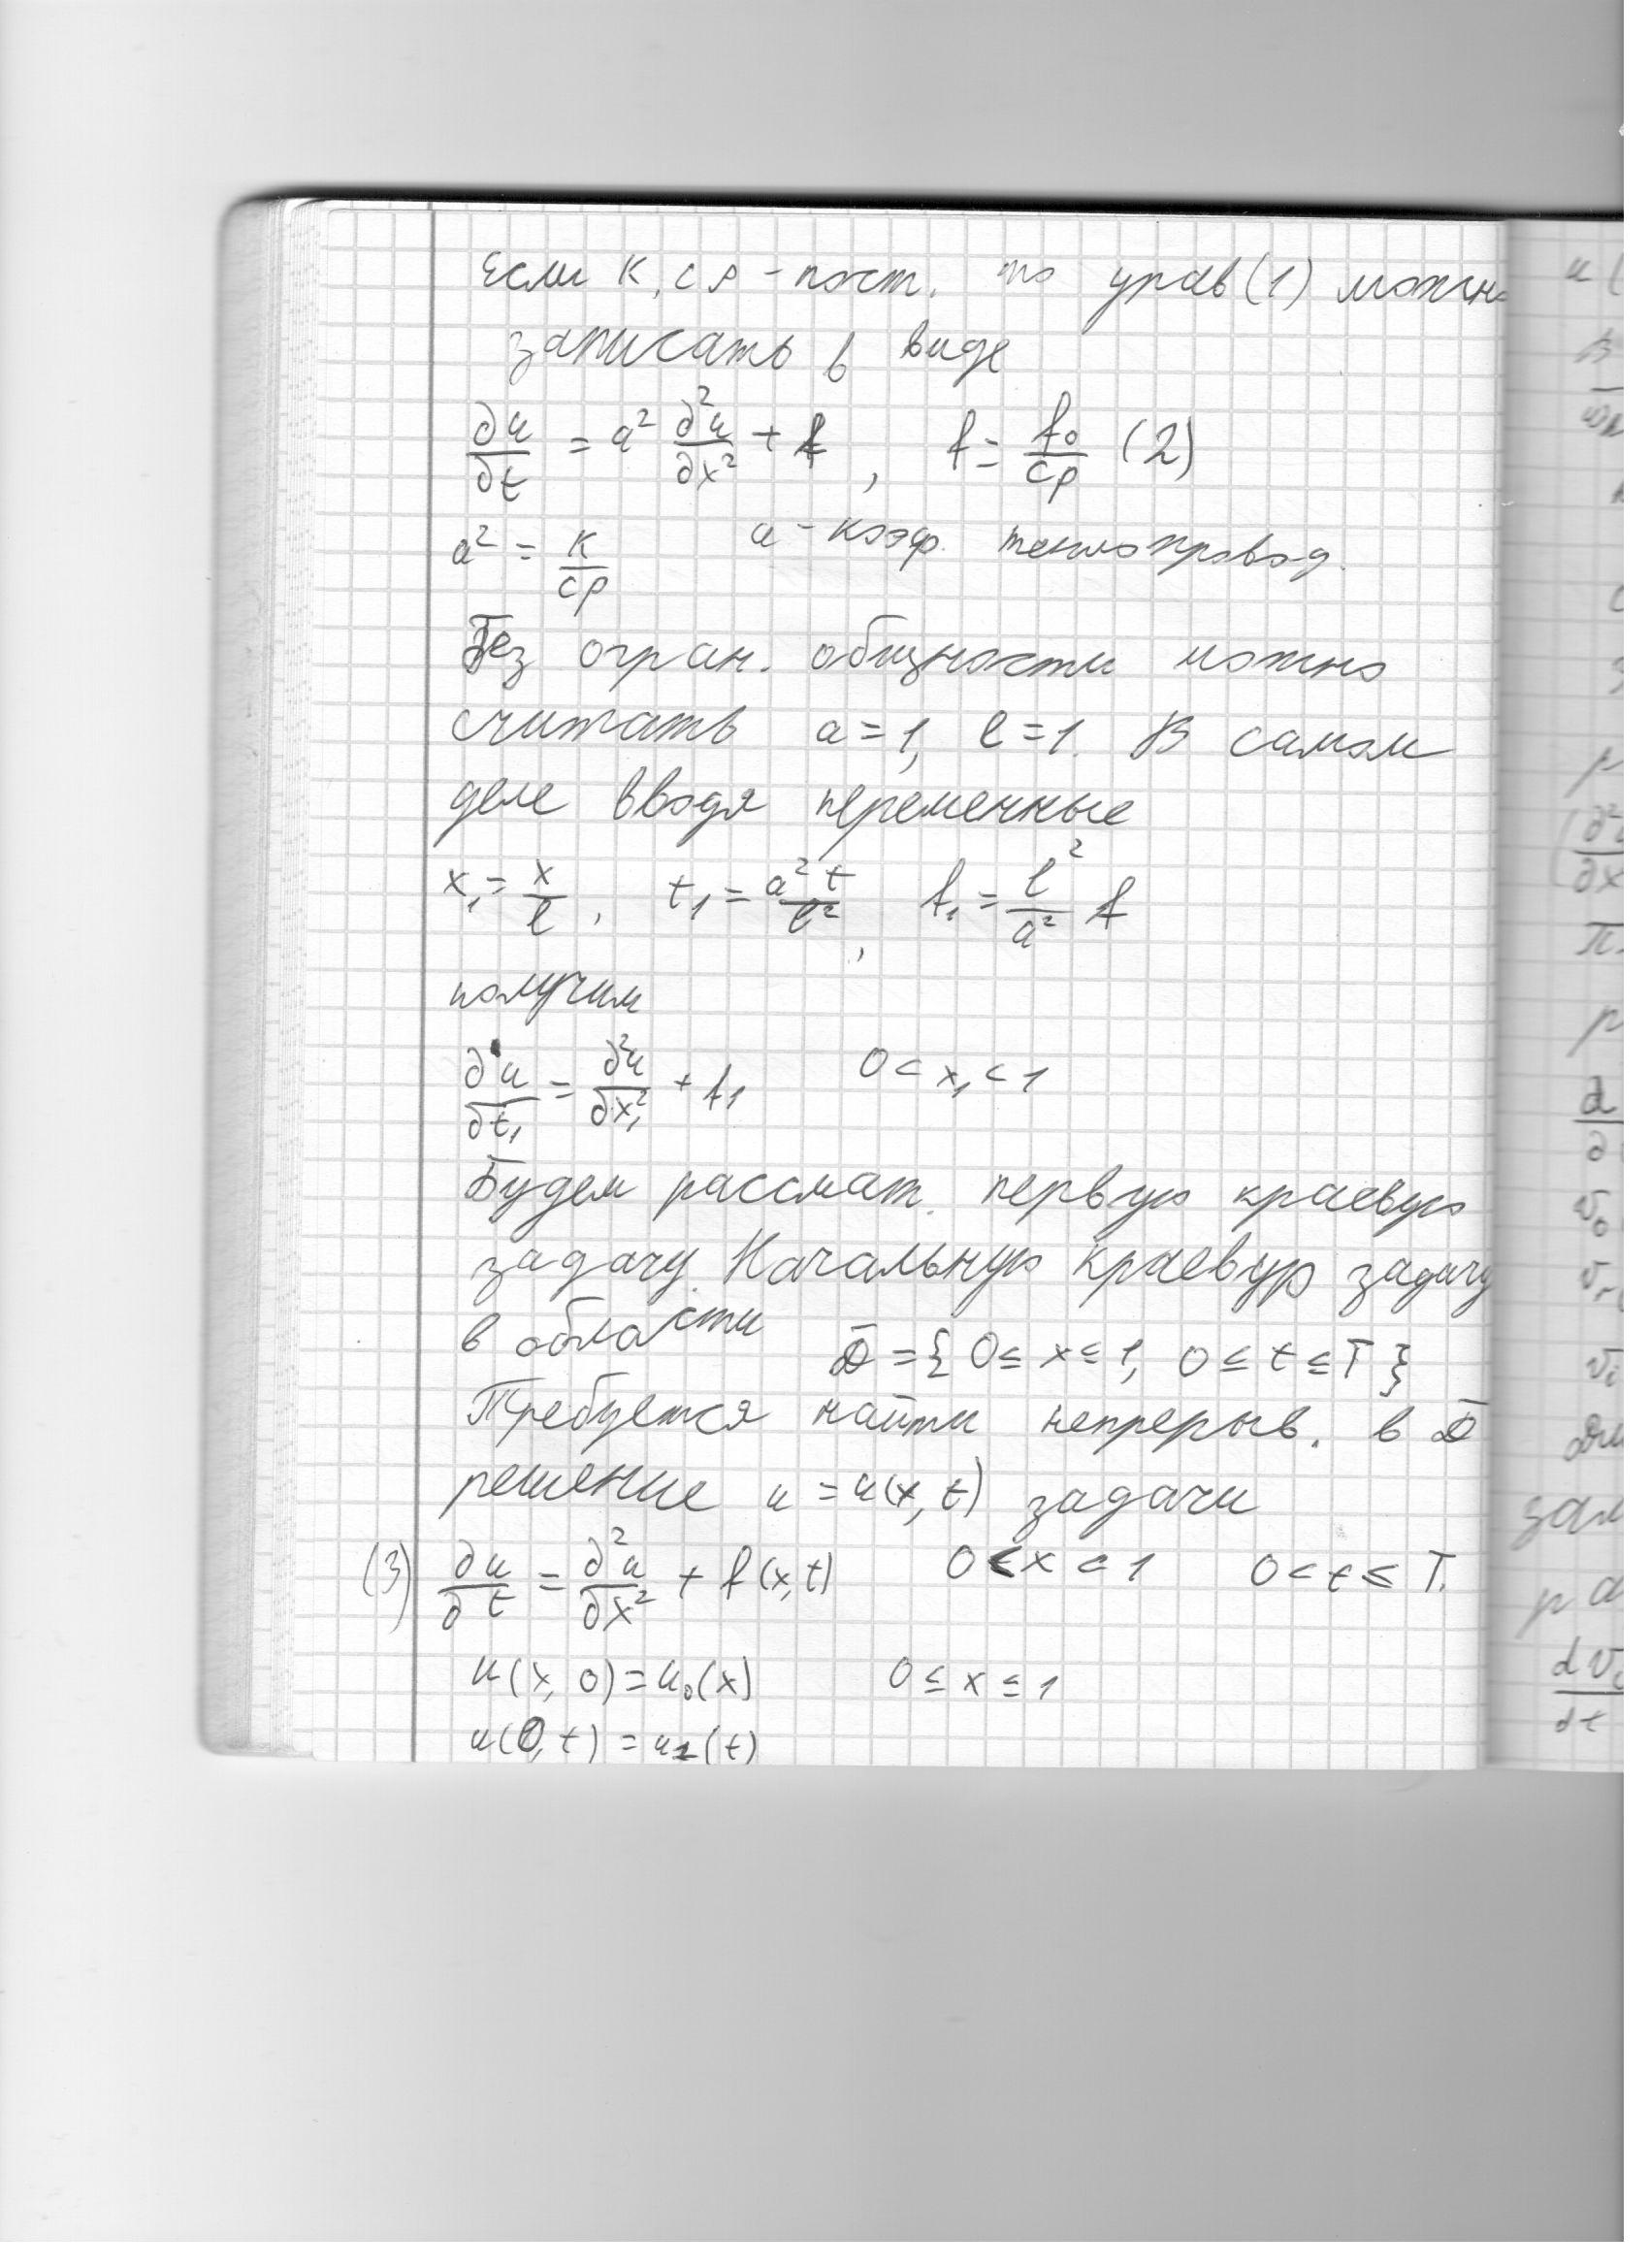 Если к, с ρ - пост. то урав (1) можно
записать в виде
∂u/∂t = a² ∂²u/∂x² + f, f = f₀/cρ (2)
a² = к/cρ a - коэф. теплопровод.
Без огран. общности можно
считать a = 1, l = 1. В самом
деле вводя переменные
x₁ = x/l, t₁ = a²t/l², f₁ = l²/a² f
получим
∂u/∂t₁ = ∂²u/∂x₁² + f₁ 0 < x₁ < 1
Будем рассмат. первую краевую
задачу. Начальную краевую задачу
в области D̄ = { 0 ≤ x ≤ 1, 0 ≤ t ≤ T }
Требуется найти непрерыв. в D̄
решение u = u(x, t) задачи
(3) ∂u/∂t = ∂²u/∂x² + f(x, t) 0 < x < 1 0 < t ≤ T.
u(x, 0) = u₀(x) 0 ≤ x ≤ 1
u(0, t) = u₁(t)